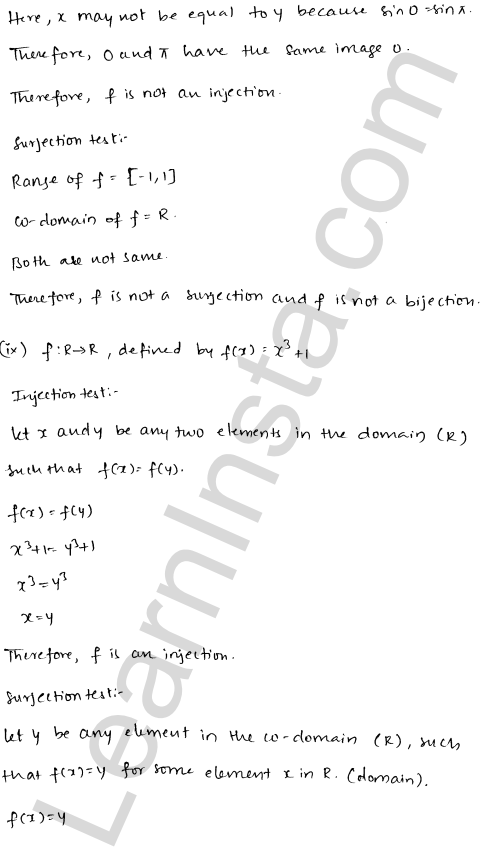 Here, x may not be equal to y because sin0=sinπ.
Therefore, 0 and π have the same image 0.
Therefore, f is not an injection.
Surjection test:-
Range of f = [-1,1]
Co-domain of f = R.
Both are not same.
Therefore, f is not a surjection and f is not a bijection.
(ix) f:R→R, defined by f(x) = x³+1
Injection test:-
Let x and y be any two elements in the domain (R)
such that f(x)= f(y).
f(x) = f(y)
x³+1= y³+1
x³=y³
x=y
Therefore, f is an injection.
Surjection test:-
Let y be any element in the co-domain (R), such
that f(x)=y for some element x in R. (domain).
f(x)=y
LearnInsta.com